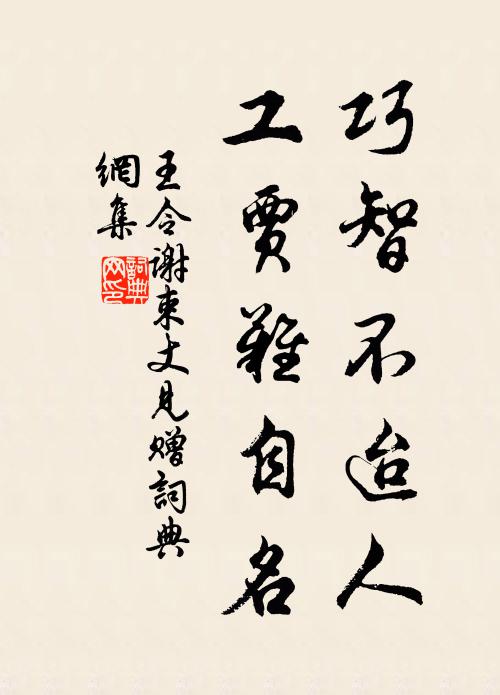 巧智不迨人
工賈難自名
王令謝束丈見贈詞典
網集
詞典
网印